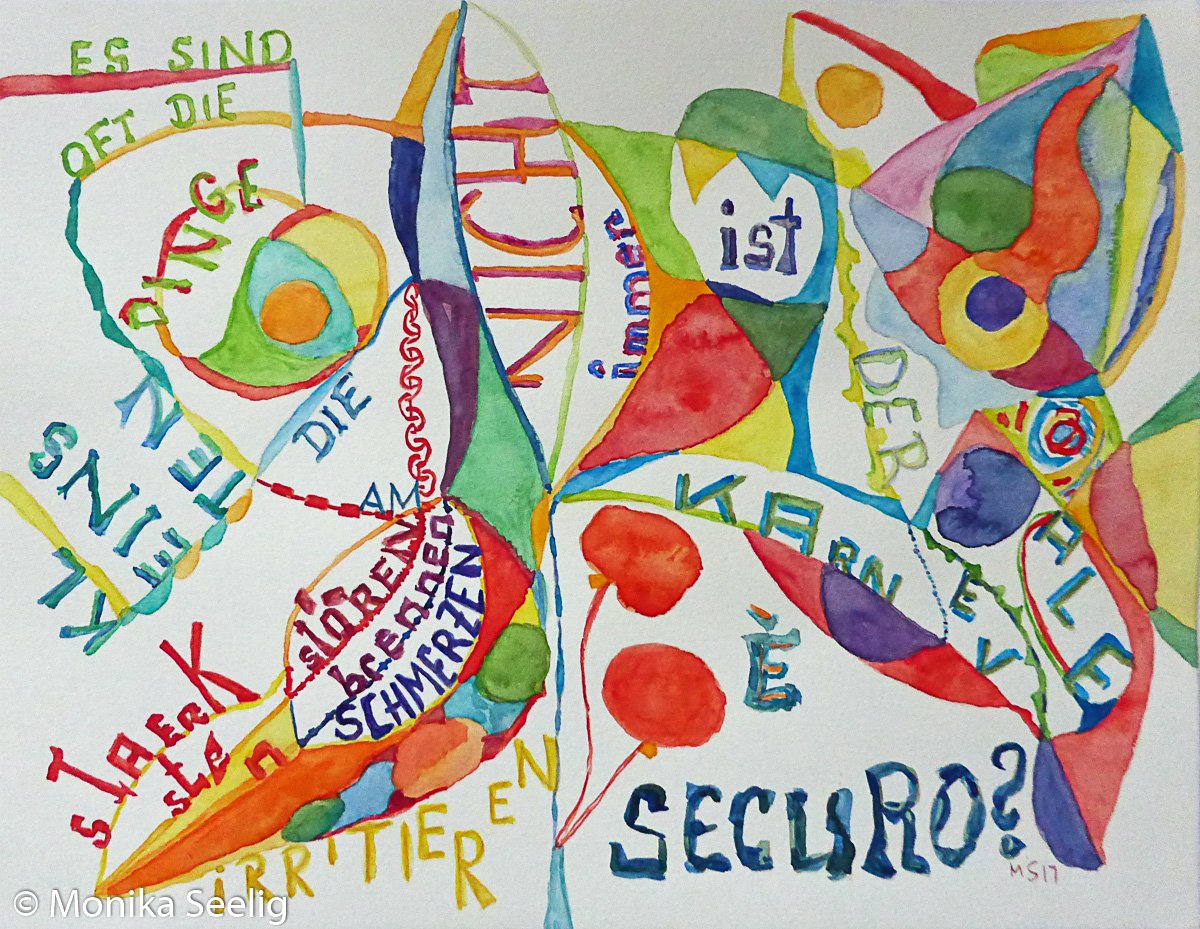 ES SIND
OFT DIE
KLEINSTEN
DINGE
DIE
AM
STAERK
stEn
stören
brennen
SCHMERZEN
iRRiTIEREN
NICHT
immer
ist
DER
KARNEV
ALE
È
SECURO?
MS17
© Monika Seelig